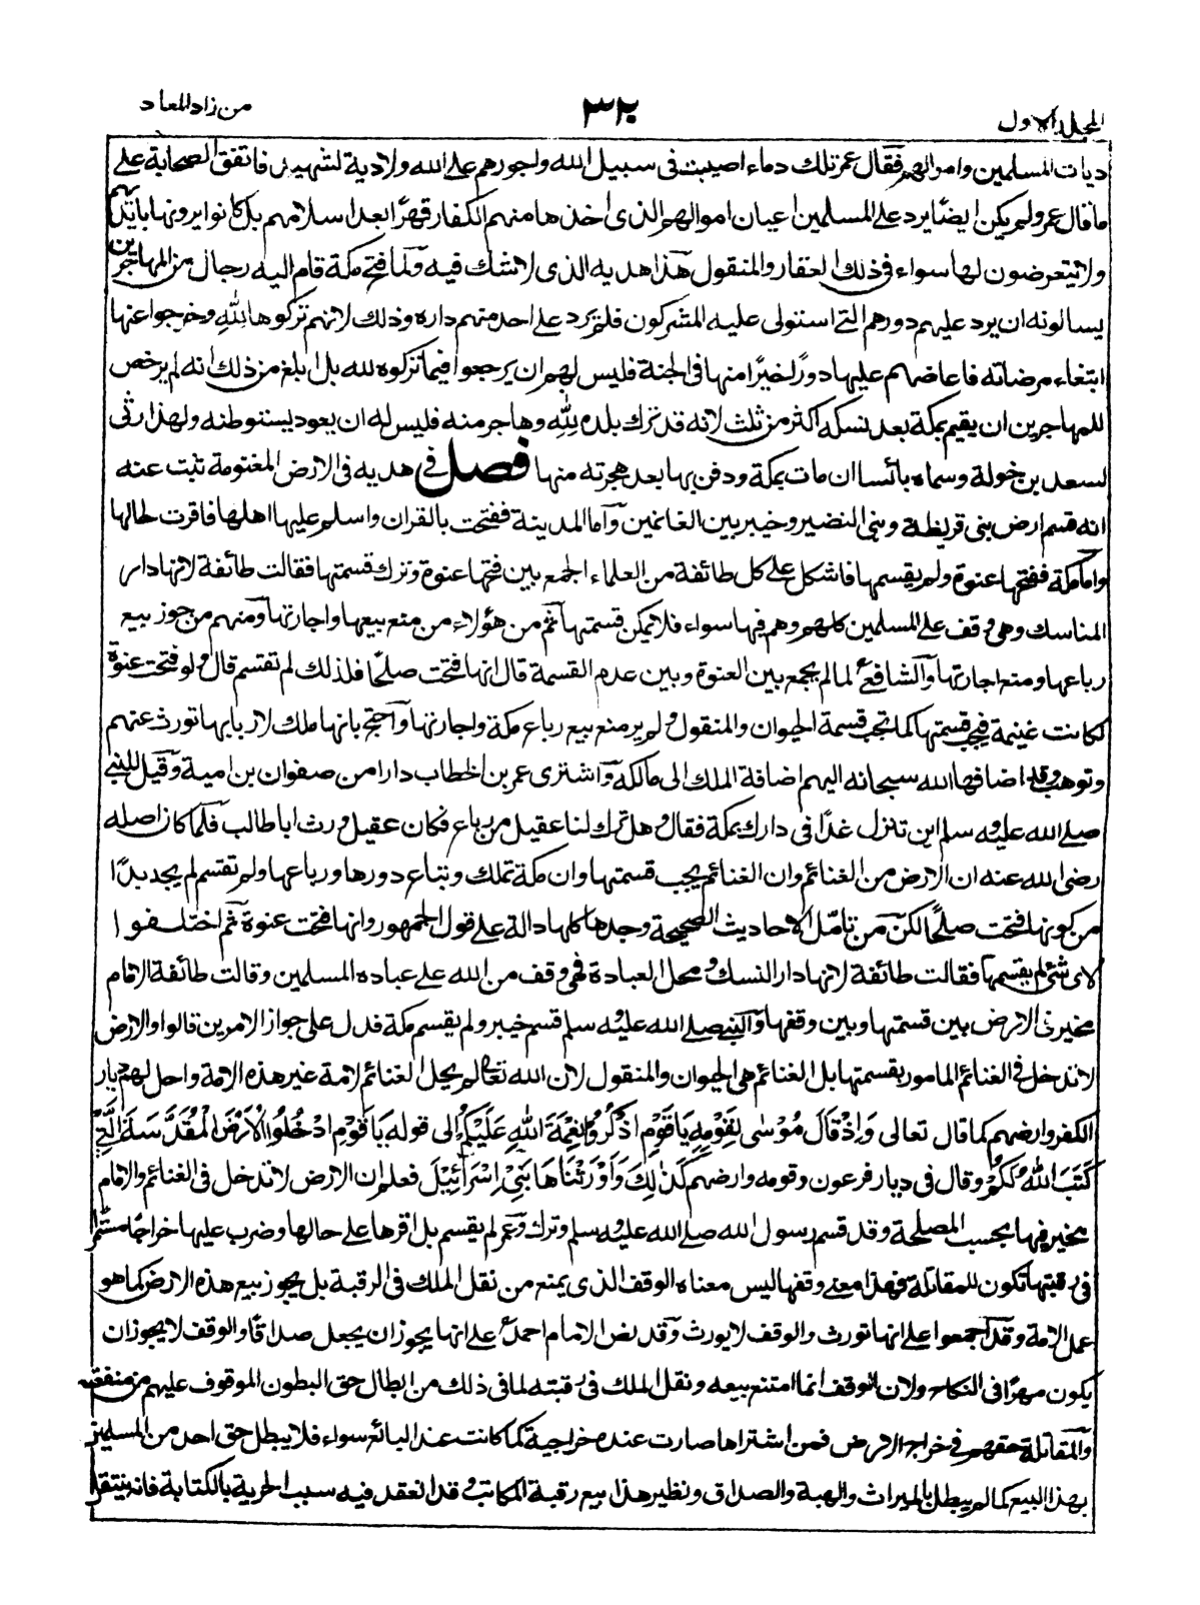 المجلد الاول ٣٢٠ من زاد المعاد
ديات المسلمين واموالهم فقال عمر تلك دماء اصيبت فى سبيل الله واجورهم على الله ولا دية لشهيد فاتفق الصحابة على
ما قال عمر ولم يكن ايضًا يرد على المسلمين اعيان اموالهم الذى اخذها منهم الكفار قهرًا بعد اسلامهم بل كانوا يرونها بايديهم
ولا يتعرضون لها سواء فى ذلك العقار والمنقول هذا هديه الذى لا شك فيه ولما فتح مكة قام اليه رجال من المهاجرين
يسالونه ان يرد عليهم دورهم التى استولى عليه المشركون فلم يرد على احد منهم داره وذلك لانهم تركوها لله وخرجوا عنها
ابتغاء مرضاته فاعاضهم عليها دورًا خيرًا منها فى الجنة فليس لهم ان يرجعوا فيما تركوه لله بل ابلغ من ذلك انه لم يرخص
للمهاجرين ان يقيم بمكة بعد نسكه اكثر من ثلث لانه قد ترك بلده لله وهاجر منه فليس له ان يعود يستوطنه ولهذا رثى
لسعد بن خولة وسماه بائسا ان مات بمكة ودفن بها بعد هجرته منها فصل فى هديه فى الارض المغنومة ثبت عنه
انه قسم ارض بنى قريظة وبنى النضير وخيبر بين الغانمين واما المدينة ففتحت بالقران واسلم عليها اهلها فاقرت بحالها
واما مكة ففتحها عنوة ولم يقسمها فاشكل على كل طائفة من العلماء الجمع بين فتحها عنوة وترك قسمتها فقالت طائفة لانها دار
المناسك وهى وقف على المسلمين كلهم وهم فيها سواء فلا يمكن قسمتها ثم من هؤلاء من منع بيعها واجارتها ومنهم من جوز بيع
رباعها ومنع اجارتها والشافعى لما لم يجمع بين العنوة وبين عدم القسمة قال انها فتحت صلحًا فلذلك لم تقسم قال ولو فتحت عنوة
لكانت غنيمة فيجب قسمتها كما تجب قسمة الحيوان والمنقول ولم ير منع بيع رباع مكة واجارتها واحتج بانها ملك لاربابها تورث عنهم
وتوهب وقد اضافها الله سبحانه اليهم اضافة الملك الى مالكه واشترى عمر بن الخطاب دارا من صفوان بن امية وقيل للنبى
صلى الله عليه وسلم اين تنزل غدًا فى دارك بمكة فقال وهل ترك لنا عقيل من رباع فكان عقيل ورث ابا طالب فلما كان اصله
رضى الله عنه ان الارض من الغنائم وان الغنائم يجب قسمتها وان مكة تملك وتباع دورها ورباعها ولم تقسم لم يجد بدًا
من كونها فتحت صلحًا لكن من تامل الاحاديث الصحيحة وجدها كلها دالة على قول الجمهور وانها فتحت عنوة ثم اختلفوا
لاى شئ لم يقسمها فقالت طائفة لانها دار النسك ومحل العبادة فهى وقف من الله على عباده المسلمين وقالت طائفة الامام
مخير فى الارض بين قسمتها وبين وقفها والنبى صلى الله عليه وسلم قسم خيبر ولم يقسم مكة فدل على جواز الامرين قالوا والارض
لا تدخل فى الغنائم المامور بقسمتها بل الغنائم هى الحيوان والمنقول لان الله تعالى لم يحل الغنائم لامة غير هذه الامة واحل لهم ديار
الكفر وارضهم كما قال تعالى وَاِذْ قَالَ مُوْسٰى لِقَوْمِهٖ يَا قَوْمِ اذْكُرُوْا نِعْمَةَ اللهِ عَلَيْكُمْ الى قوله يَا قَوْمِ ادْخُلُوا الْاَرْضَ الْمُقَدَّسَةَ الَّتِىْ
كَتَبَ اللهُ لَكُمْ وقال فى ديار فرعون وقومه وارضهم كَذٰلِكَ وَاَوْرَثْنَاهَا بَنِىْ اِسْرَائِيْلَ فعلم ان الارض لا تدخل فى الغنائم والامام
مخير فيها بحسب المصلحة وقد قسم رسول الله صلى الله عليه وسلم وترك وعمر لم يقسم بل اقرها على حالها وضرب عليها خراجًا مستمرا
فى رقبتها تكون للمقاتلة فهذا معنى وقفها ليس معناه الوقف الذى يمنع من نقل الملك فى الرقبة بل يجوز بيع هذه الارض كما هو
عمل الامة وقد اجمعوا على انها تورث والوقف لا يورث وقد نص الامام احمد على انها يجوز ان يجعل صداقًا والوقف لا يجوز ان
يكون مهرًا فى النكاح ولان الوقف انما امتنع بيعه ونقل الملك فى رقبته لما فى ذلك من ابطال حق البطون الموقوف عليهم من منفعته
والمقاتلة حقهم فى خراج الارض فمن اشتراها صارت عنده خراجية كما كانت عند البائع سواء فلا يبطل حق احد من المسلمين
بهذا البيع كما لم يبطل بالميراث والهبة والصداق ونظير هذا بيع رقبة المكاتب وقد انعقد فيه سبب الحرية بالكتابة فانه ينتقل